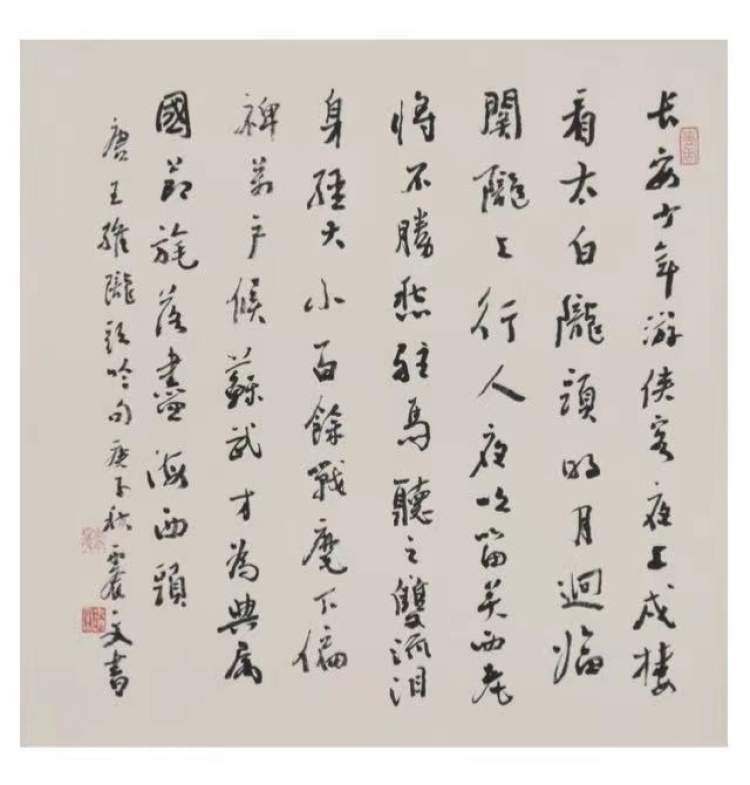 長安少年游俠客夜上戍樓
看太白隴頭明月迥臨
關隴上行人夜吹笛关西老
将不勝愁駐馬聽之雙流泪
身經大小百餘戰麾下偏
裨萬户候蘇武才為典属
國節旄落盡海西頭
唐王維隴頭吟句庚子秋文書